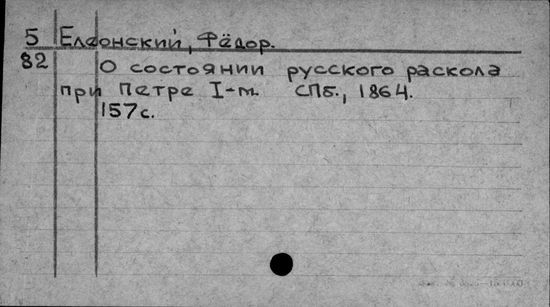 5 Елеонский, Фёдор.
82 О состоянии русского раскола
при Петре I-m. СПб., 1864.
157с.